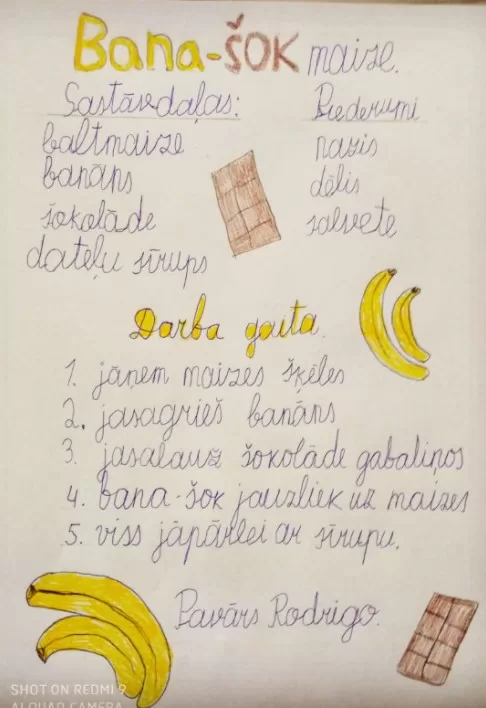 Bana-šok maize.
Sastāvdaļas:
baltmaize
banāns
šokolāde
dateļu sīrups
Piederumi
nazis
dēlis
salvete
Darba gaita.
1. jāņem maizes šķēles
2. jasagriež banāns
3. jasalauž šokolāde gabaliņos
4. bana-šok jauzliek uz maizes
5. viss jāpārlej ar sīrupu.
Pavārs Rodrigo.
SHOT ON REDMI 9
AI QUAD CAMERA